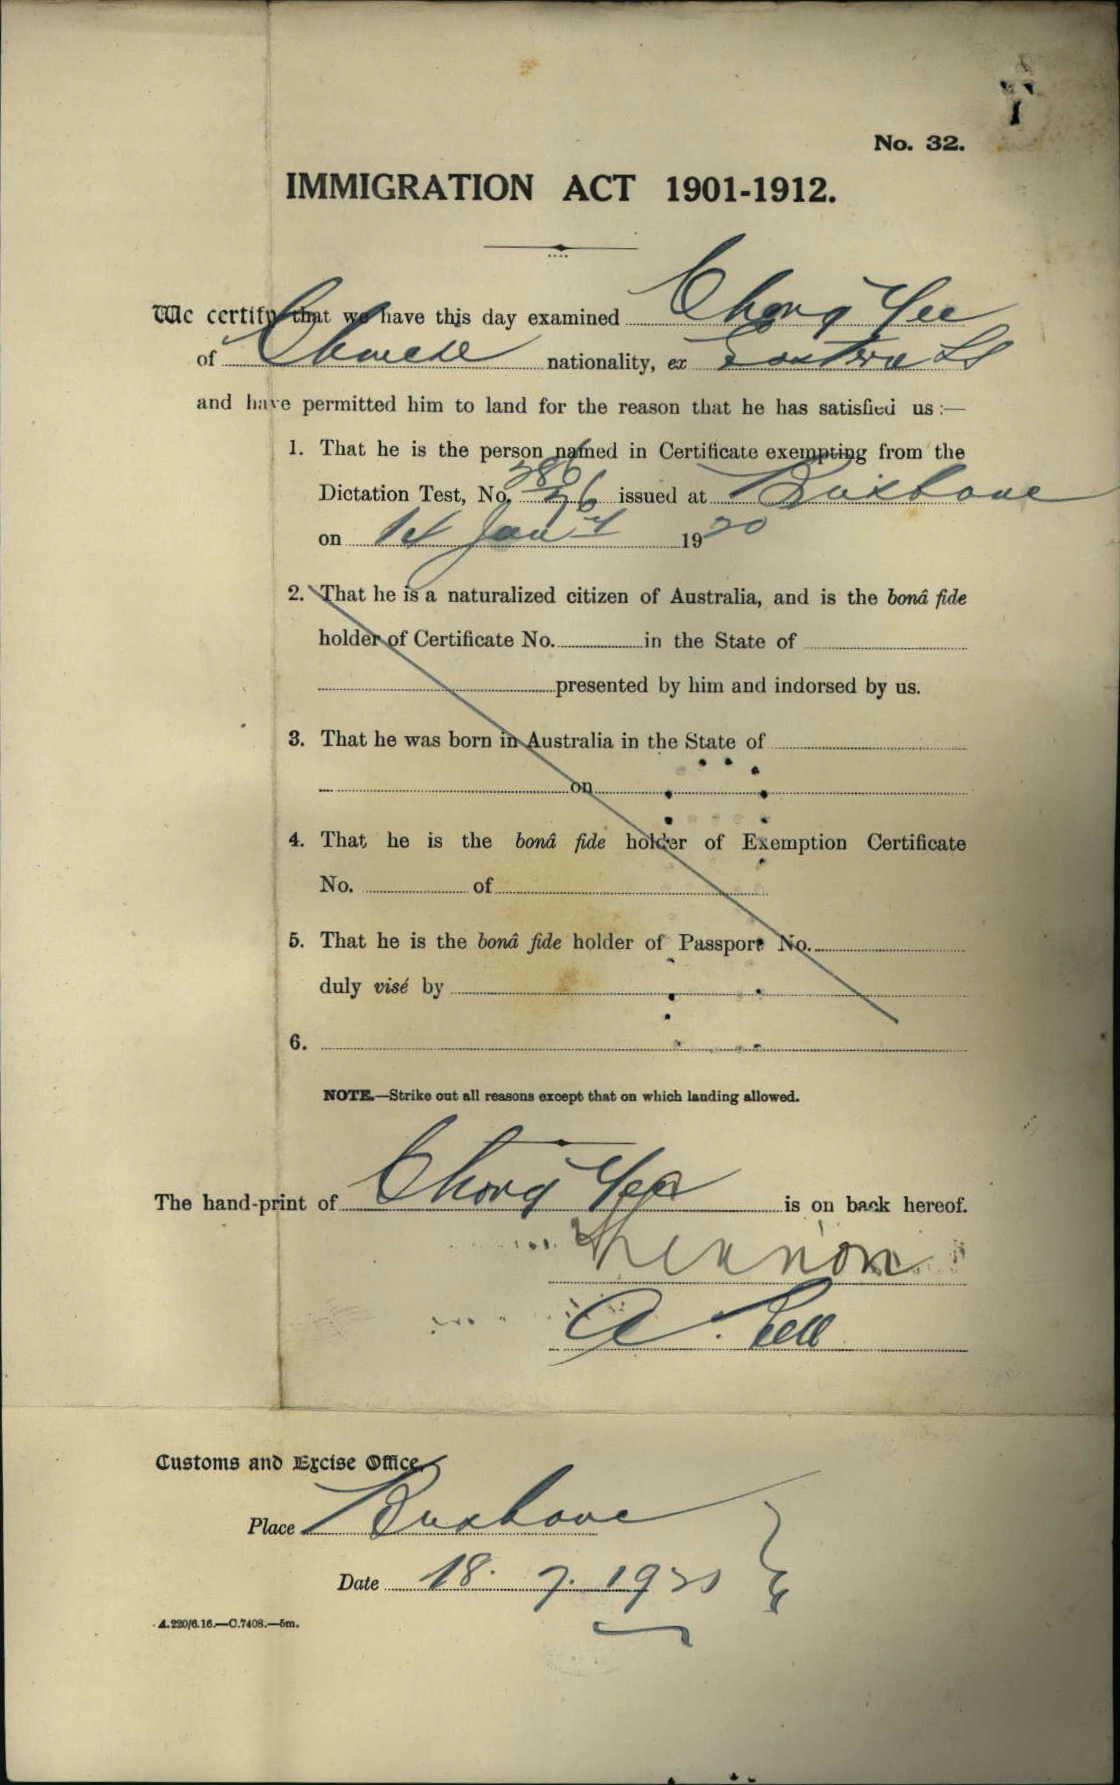 No. 32.
IMMIGRATION ACT 1901-1912.
We certify that we have this day examined Chong Yee
of Chinese nationality, ex Eastern
and have permitted him to land for the reason that he has satisfied us :—
1. That he is the person named in Certificate exempting from the
Dictation Test, No. 286/26 issued at Brisbane
on Jany 1920
2. That he is a naturalized citizen of Australia, and is the bonâ fide
holder of Certificate No. in the State of
presented by him and indorsed by us.
3. That he was born in Australia in the State of
on
4. That he is the bonâ fide holder of Exemption Certificate
No. of
5. That he is the bonâ fide holder of Passport No.
duly visé by
6.
NOTE.—Strike out all reasons except that on which landing allowed.
The hand-print of Chong Yee is on back hereof.
A. Bell
Customs and Excise Office,
Place Brisbane
Date 18. 7. 1921
A.220/6.16.—C.7408.—5m.